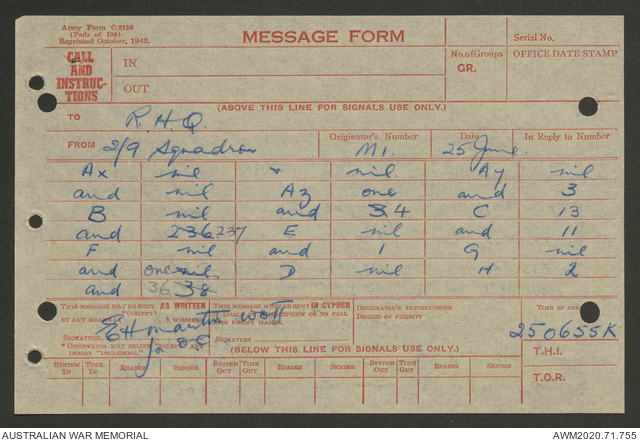 Army Form C.2130
(Pads of 100)
Reprinted October, 1942.
MESSAGE FORM
Serial No.
CALL AND INSTRUC-TIONS
IN
OUT
No. of Groups
GR.
OFFICE DATE STAMP
(ABOVE THIS LINE FOR SIGNALS USE ONLY.)
TO R.H.Q.
FROM 2/9 Squadron
Originator's Number M1.
Date 25 June
In Reply to Number
Ax nil + nil Ay nil
and nil Az one and 3
B nil and 34 C 13
and 236 237 E nil and 11
F nil and 1 G nil
and one nil D nil H 2
and 36 38
THIS MESSAGE MAY BE SENT AS WRITTEN
BY ANY MEANS (EXCEPT) WIRELESS
THIS MESSAGE MUST BE SENT IN CYPHER
ORIGINATOR'S INSTRUCTIONS
DEGREE OF PRIORITY
TIME OF ORIGIN
250655K
SIGNATURE WO II
for OC
SIGNATURE
* ORIGINATOR MAY DELETE "EXCEPT" AND INSERT "INCLUDING."
(BELOW THIS LINE FOR SIGNALS USE ONLY.)
T.H.I.
T.O.R.
SYSTEM IN TIME IN READER SENDER SYSTEM OUT TIME OUT READER SENDER SYSTEM OUT TIME OUT READER SENDER
AUSTRALIAN WAR MEMORIAL
AWM2020.71.755